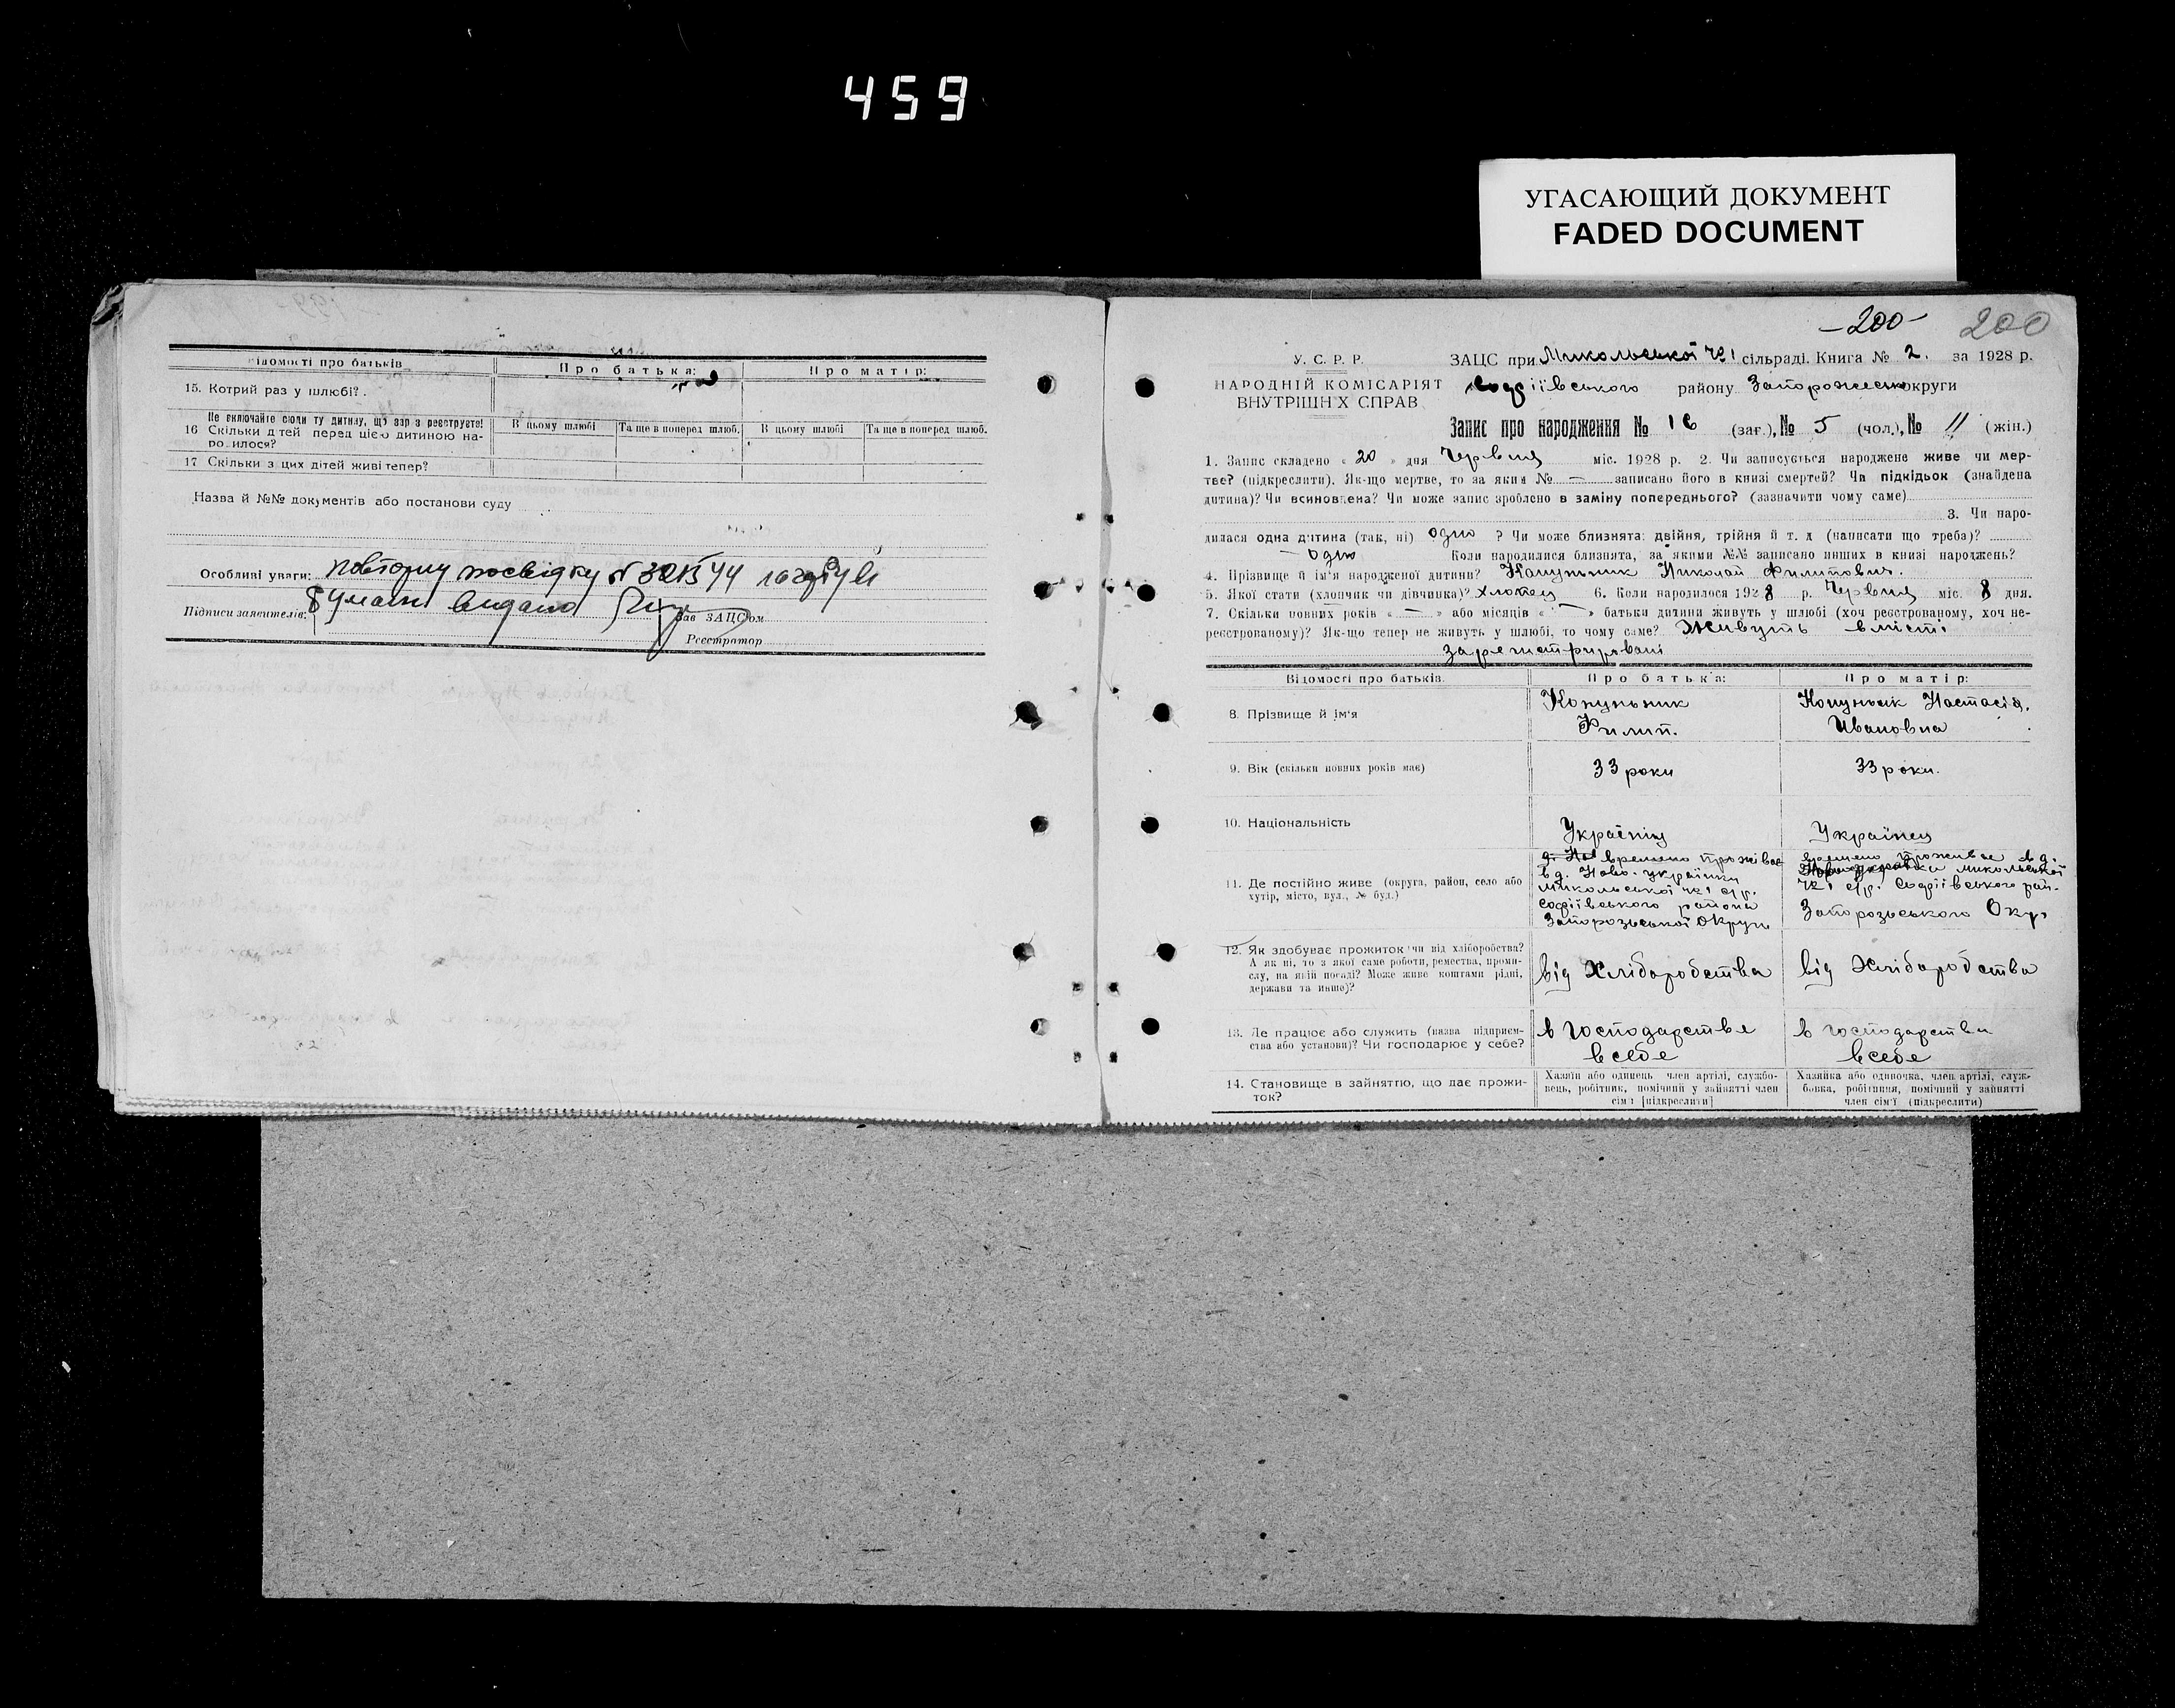 459
УГАСАЮЩИЙ ДОКУМЕНТ
FADED DOCUMENT
Відомості про батьків
Про батька:
Про матір:
15. Котрий раз у шлюбі?
Не включайте сюди ту дитину, що зараз реєструєте!
16 Скільки дітей перед цією дитиною на-
родилося?
В цьому шлюбі
Та ще в поперед. шлюб.
В цьому шлюбі
Та ще в поперед. шлюб.
17 Скільки з цих дітей живі тепер?
Назва й №№ документів або постанови суду
Особливі уваги: повторну посвідку № видано
Підписи заявителів:
Зав ЗАЦС'ом
Реєстратор
-200- 200
У. С. Р. Р.
НАРОДНІЙ КОМІСАРІЯТ
ВНУТРІШНІХ СПРАВ
ЗАЦС при Микольської №1 сільраді. Книга № 2. за 1928 р.
Софіївського району Запорожської округи
Запис про народження № 16 (заг.), № 5 (чол.), № 11 (жін.)
1. Запис складено « 20 » дня Червня міс. 1928 р. 2. Чи записується народжене живе чи мер-
тве? (підкреслити). Як-що мертве, то за яким № — записано його в книзі смертей? Чи підкідьок (знайдена
дитина)? Чи всиновлена? Чи може запис зроблено в заміну попереднього? (зазначити чому саме)
3. Чи наро-
дилася одна дитина (так, ні) одно ? Чи може близнята: двійня, трійня й т. д (написати що треба)?
— одно Коли народилися близнята, за якими №№ записано инших в книзі народжень?
4. Прізвище й ім'я народженої дитини? Копунник Николай Филипович.
5. Якої стати (хлопчик чи дівчинка)? хлопец 6. Коли народилося 1928 р. Червня міс. 8 дня.
7. Скільки повних років « — » або місяців « — » батьки дитини живуть у шлюбі (хоч реєстрованому, хоч не-
реєстрованому)? Як-що тепер не живуть у шлюбі, то чому саме? Живуть вмісті
зарегистрировані
Відомості про батьків.
Про батька:
Про матір:
8. Прізвище й ім'я
Копунник
Филип.
Копунник Настасія,
Ивановна
9. Вік (скільки повних років має)
33 роки
33 роки.
10. Національність
Українец
Українец
11. Де постійно живе (округа, район, село або
хутір, місто, вул., № буд.)
времено проживае
в д. Ново-українки
Микольської №1 с/р.
Софіївського района
Запорозьської Округи
времено проживае в д.
Новоукраїнка Микольської
№1 с/р. Софіївського рай-
Запорозьського Окр.
12. Як здобуває прожиток: чи від хліборобства?
А як ні, то з якої саме роботи, ремества, проми-
слу, на якій посаді? Може живе коштами рідні,
держави та инше)?
від Хліборобства
від Хліборобства
13. Де працює або служить (назва підприєм-
ства або установи)? Чи господарює у себе?
в господарстве
всебе
в господарстви
всебе
14. Становище в зайняттю, що дає прожи-
ток?
Хазяїн або одинець член артілі, службо-
вець, робітник, помічний у зайнятті член
сім'ї [підкреслити]
Хазяйка або одиночка, член артілі, служ-
бовка, робітниця, помічний у зайнятті
член сім'ї (підкреслити)